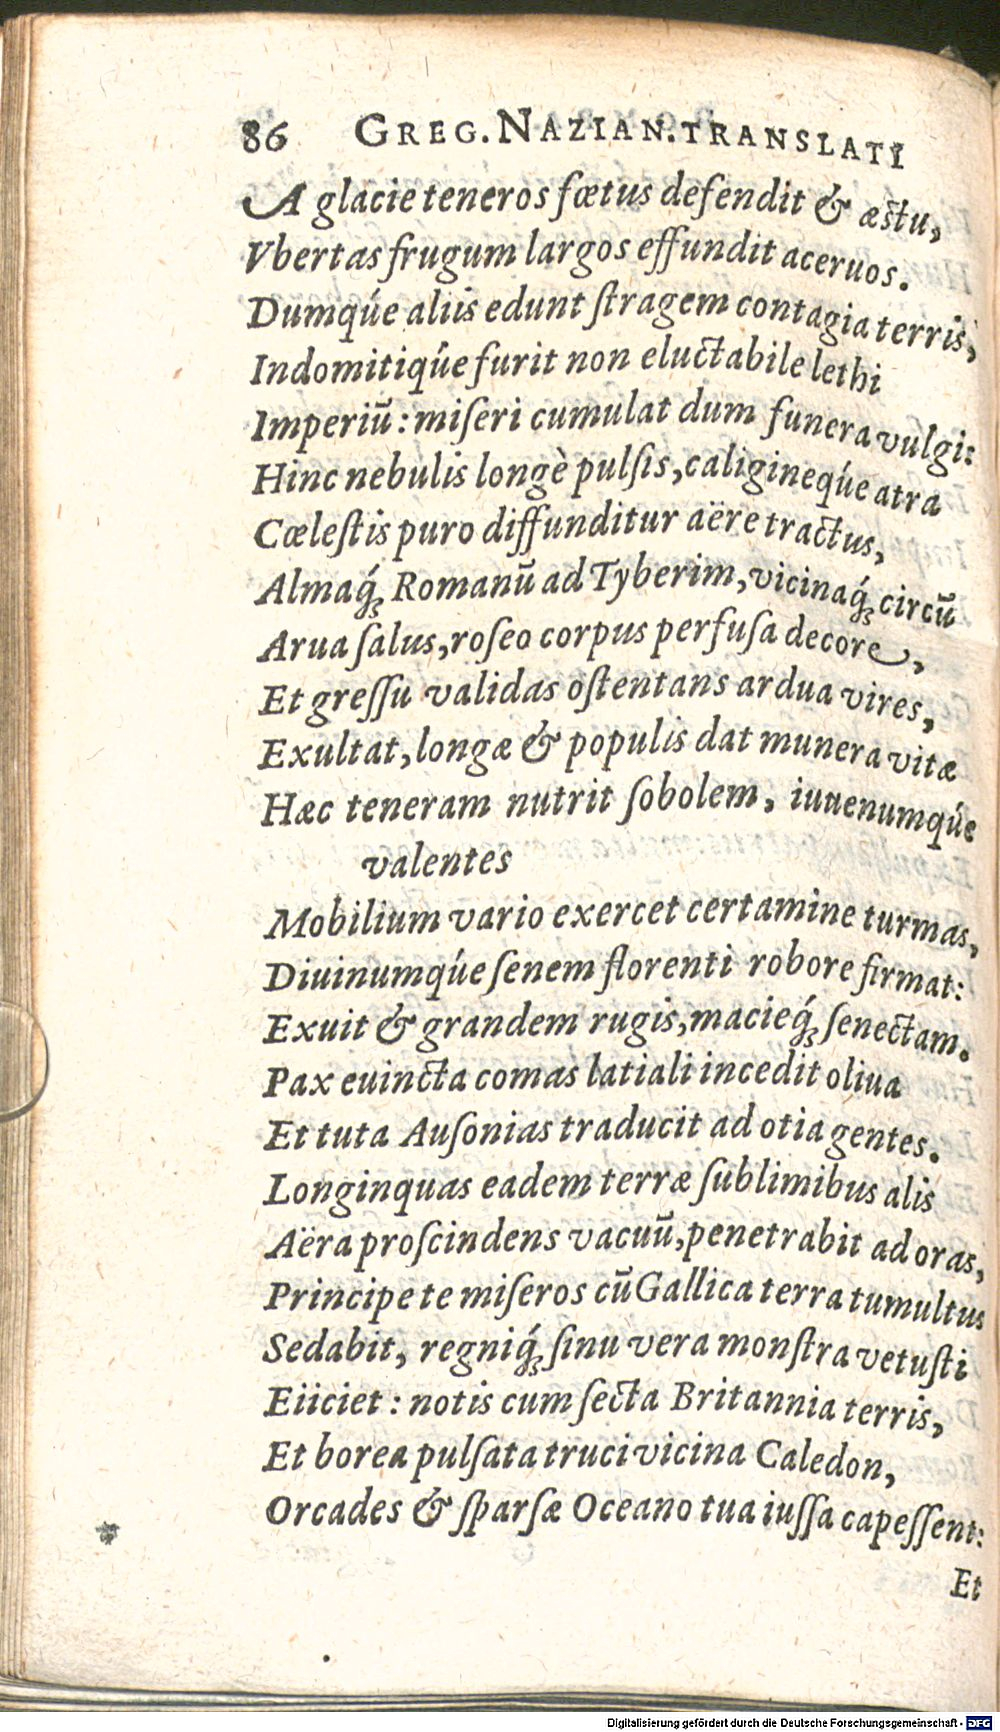 86 GREG. NAZIAN. TRANSLATI
A glacie teneros fœtus defendit & æstu,
Vbertas frugum largos effundit aceruos.
Dumqúe aliis edunt ſtragem contagia terris,
Indomitiqúe furit non eluctabile lethi
Imperiũ: miſeri cumulat dum funera vulgi:
Hinc nebulis longè pulſis, caligineqúe atra
Cœleſtis puro diffunditur aëre tractus,
Almaq́ꝫ Romanũ ad Tyberim, vicinaq́ꝫ circũ
Arua ſalus, roſeo corpus perfuſa decore,
Et greſſu validas oſtentans ardua vires,
Exultat, longæ & populis dat munera vitæ
Hæc teneram nutrit ſobolem, iuuenumqúe
valentes
Mobilium vario exercet certamine turmas,
Diuinumqúe ſenem florenti robore firmat:
Exuit & grandem rugis, macieq́ꝫ ſenectam.
Pax euincta comas latiali incedit oliua
Et tuta Auſonias traducit ad otia gentes.
Longinquas eadem terræ ſublimibus alis
Aëra proſcindens vacuũ, penetrabit ad oras,
Principe te miſeros cũ Gallica terra tumultus
Sedabit, regniq́ꝫ ſinu vera monſtra vetuſti
Eiiciet: notis cum ſecta Britannia terris,
Et borea pulſata truci vicina Caledon,
Orcades & ſparſæ Oceano tua iuſſa capeſſent:
Et
Digitalisierung gefördert durch die Deutsche Forschungsgemeinschaft - DFG